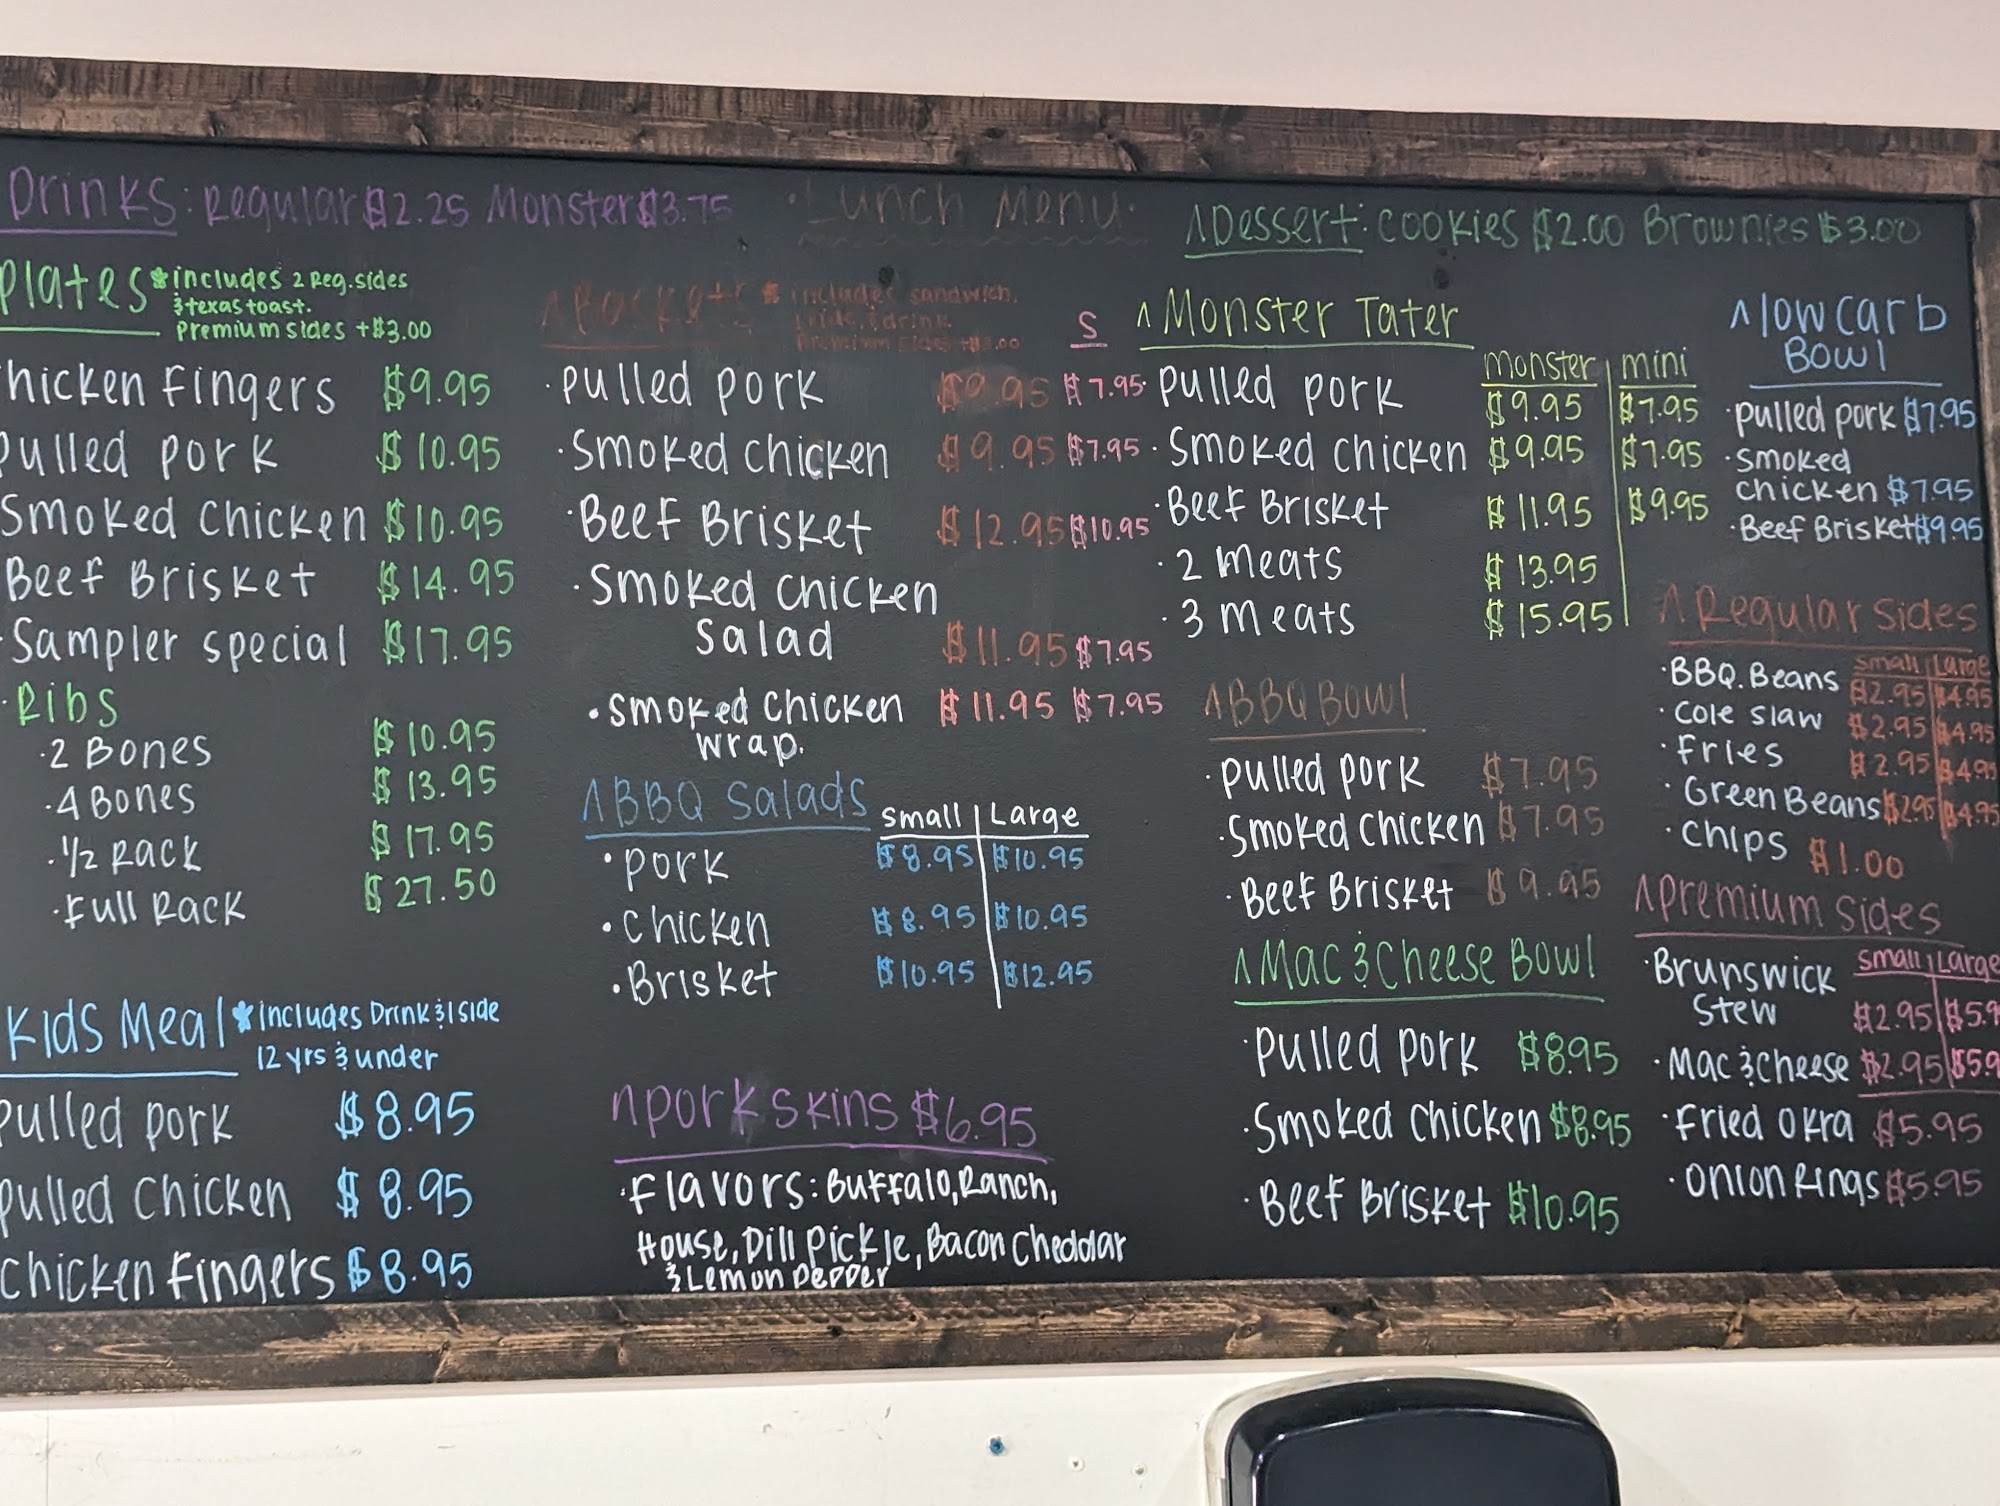 Drinks: Regular $2.25 Monster $3.75
·Lunch Menu·
Dessert: Cookies $2.00 Brownies $3.00
Plates *includes 2 Reg. sides
& texas toast.
Premium sides +$3.00
hicken Fingers $9.95
Pulled pork $10.95
Smoked Chicken $10.95
Beef Brisket $14.95
·Sampler special $17.95
·Ribs
·2 Bones $10.95
·4 Bones $13.95
·1/2 Rack $17.95
·Full Rack $27.50
Kids Meal *includes Drink & 1 side
12 yrs & under
Pulled pork $8.95
Pulled Chicken $8.95
Chicken Fingers $8.95
Baskets * includes sandwich,
1 side, 1 drink
Premium sides
S
·Pulled pork $9.95 $7.95
·Smoked Chicken $9.95 $7.95
·Beef Brisket $12.95 $10.95
·Smoked Chicken
Salad $11.95 $7.95
·Smoked Chicken $11.95 $7.95
Wrap.
BBQ Salads Small Large
·Pork $8.95 $10.95
·Chicken $8.95 $10.95
·Brisket $10.95 $12.95
Pork Skins $6.95
·Flavors: Buffalo, Ranch,
House, Dill Pickle, Bacon Cheddar
& Lemon Pepper
Monster Tater
Monster mini
·Pulled pork $9.95 $7.95
·Smoked Chicken $9.95 $7.95
·Beef Brisket $11.95 $9.95
·2 Meats $13.95
·3 Meats $15.95
BBQ Bowl
·Pulled pork $7.95
·Smoked Chicken $7.95
·Beef Brisket $9.95
Mac & Cheese Bowl
·Pulled pork $8.95
·Smoked Chicken $8.95
·Beef Brisket $10.95
low carb
Bowl
·Pulled pork $7.95
·Smoked
Chicken $7.95
·Beef Brisket $9.95
Regular Sides
Small Large
·BBQ.Beans $2.95 $4.95
·Cole slaw $2.95 $4.95
·Fries $2.95 $4.95
·Green Beans $2.95 $4.95
·Chips $1.00
Premium Sides
Small Large
·Brunswick
Stew $2.95 $5.9
·Mac & Cheese $2.95 $5.9
·Fried Okra $5.95
·Onion Rings $5.95